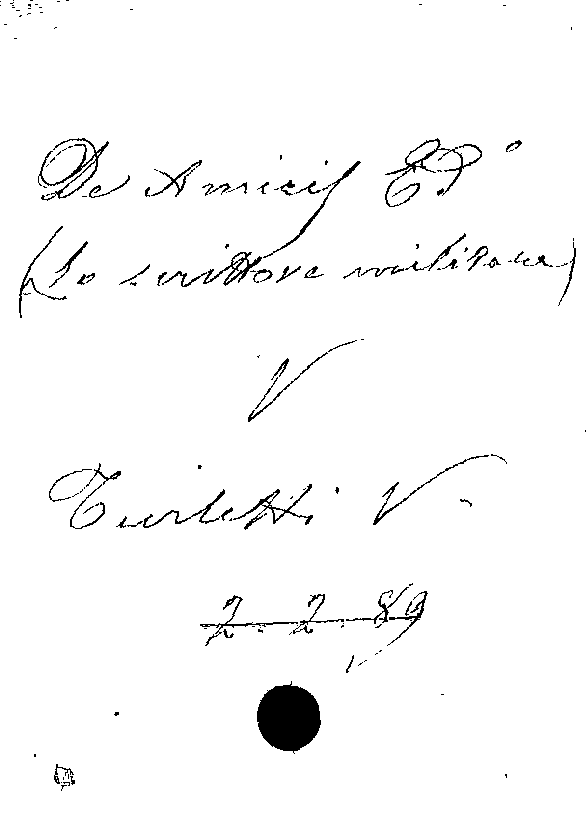 De Amicis Ed.°
(Lo scrittore militare)
V
Turletti V.
2. 2. 89